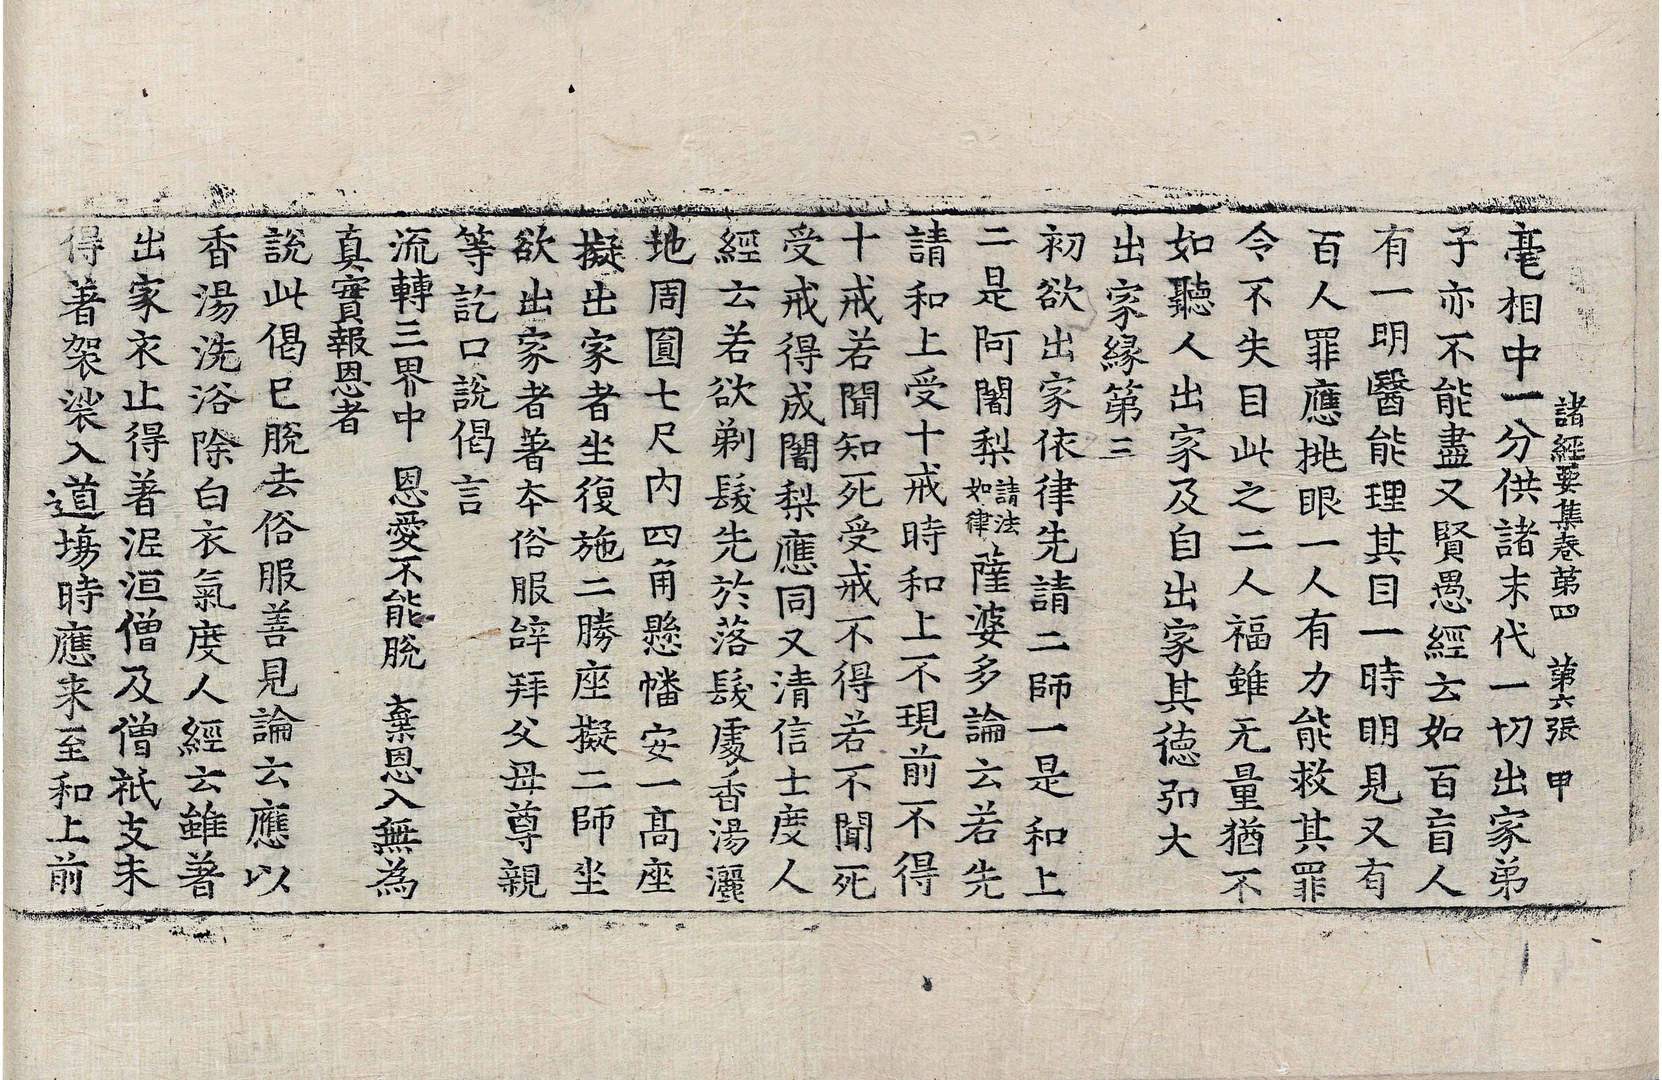 諸經要集卷第四　第六張　甲
毫相中一分供諸末代一切出家弟
子亦不能盡又賢愚經云如百盲人
有一明醫能理其目一時明見又有
百人罪應挑眼一人有力能救其罪
令不失目此之二人福雖无量猶不
如聽人出家及自出家其德弘大
出家緣第三
初欲出家依律先請二師一是和上
二是阿闍梨請法如律薩婆多論云若先
請和上受十戒時和上不現前不得
十戒若聞知死受戒不得若不聞死
受戒得成闍梨應同又清信士度人
經云若欲剃髮先於落髮處香湯灑
地周圓七尺內四角懸幡安一高座
擬出家者坐復施二勝座擬二師坐
欲出家者著本俗服辝拜父母尊親
等訖口說偈言
流轉三界中　恩愛不能脫　棄恩入無為
真實報恩者
說此偈已脫去俗服善見論云應以
香湯洗浴除白衣氣度人經云雖著
出家衣止得著泥洹僧及僧祇支未
得著袈裟入道場時應来至和上前